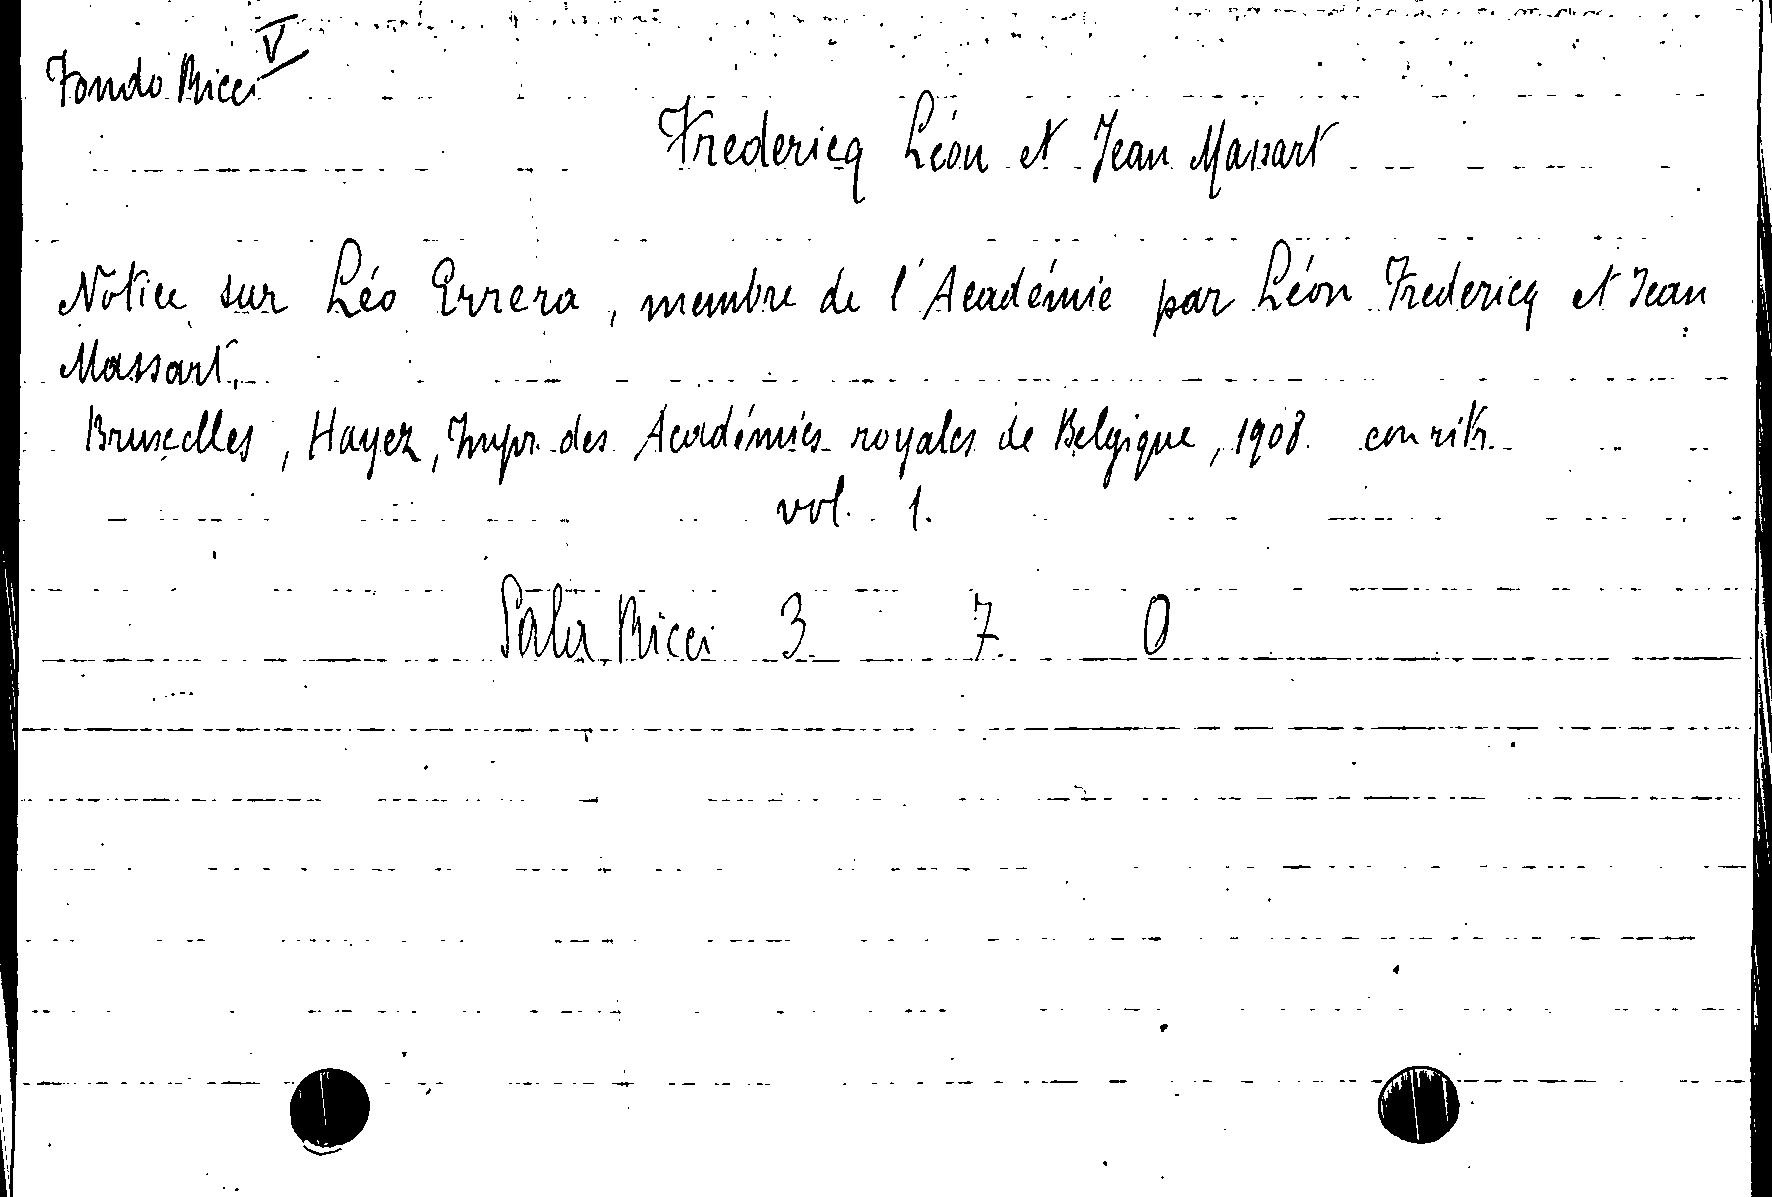 Fondo Ricci V
Fredericq Léon et Jean Massart
Notice sur Léo Errera, membre de l'Académie par Léon Fredericq et Jean
Massart.
Bruxelles, Hayez, Impr. des Académies royales de Belgique, 1908. con ritr.
vol. 1.
Sala Ricci 3 7 0